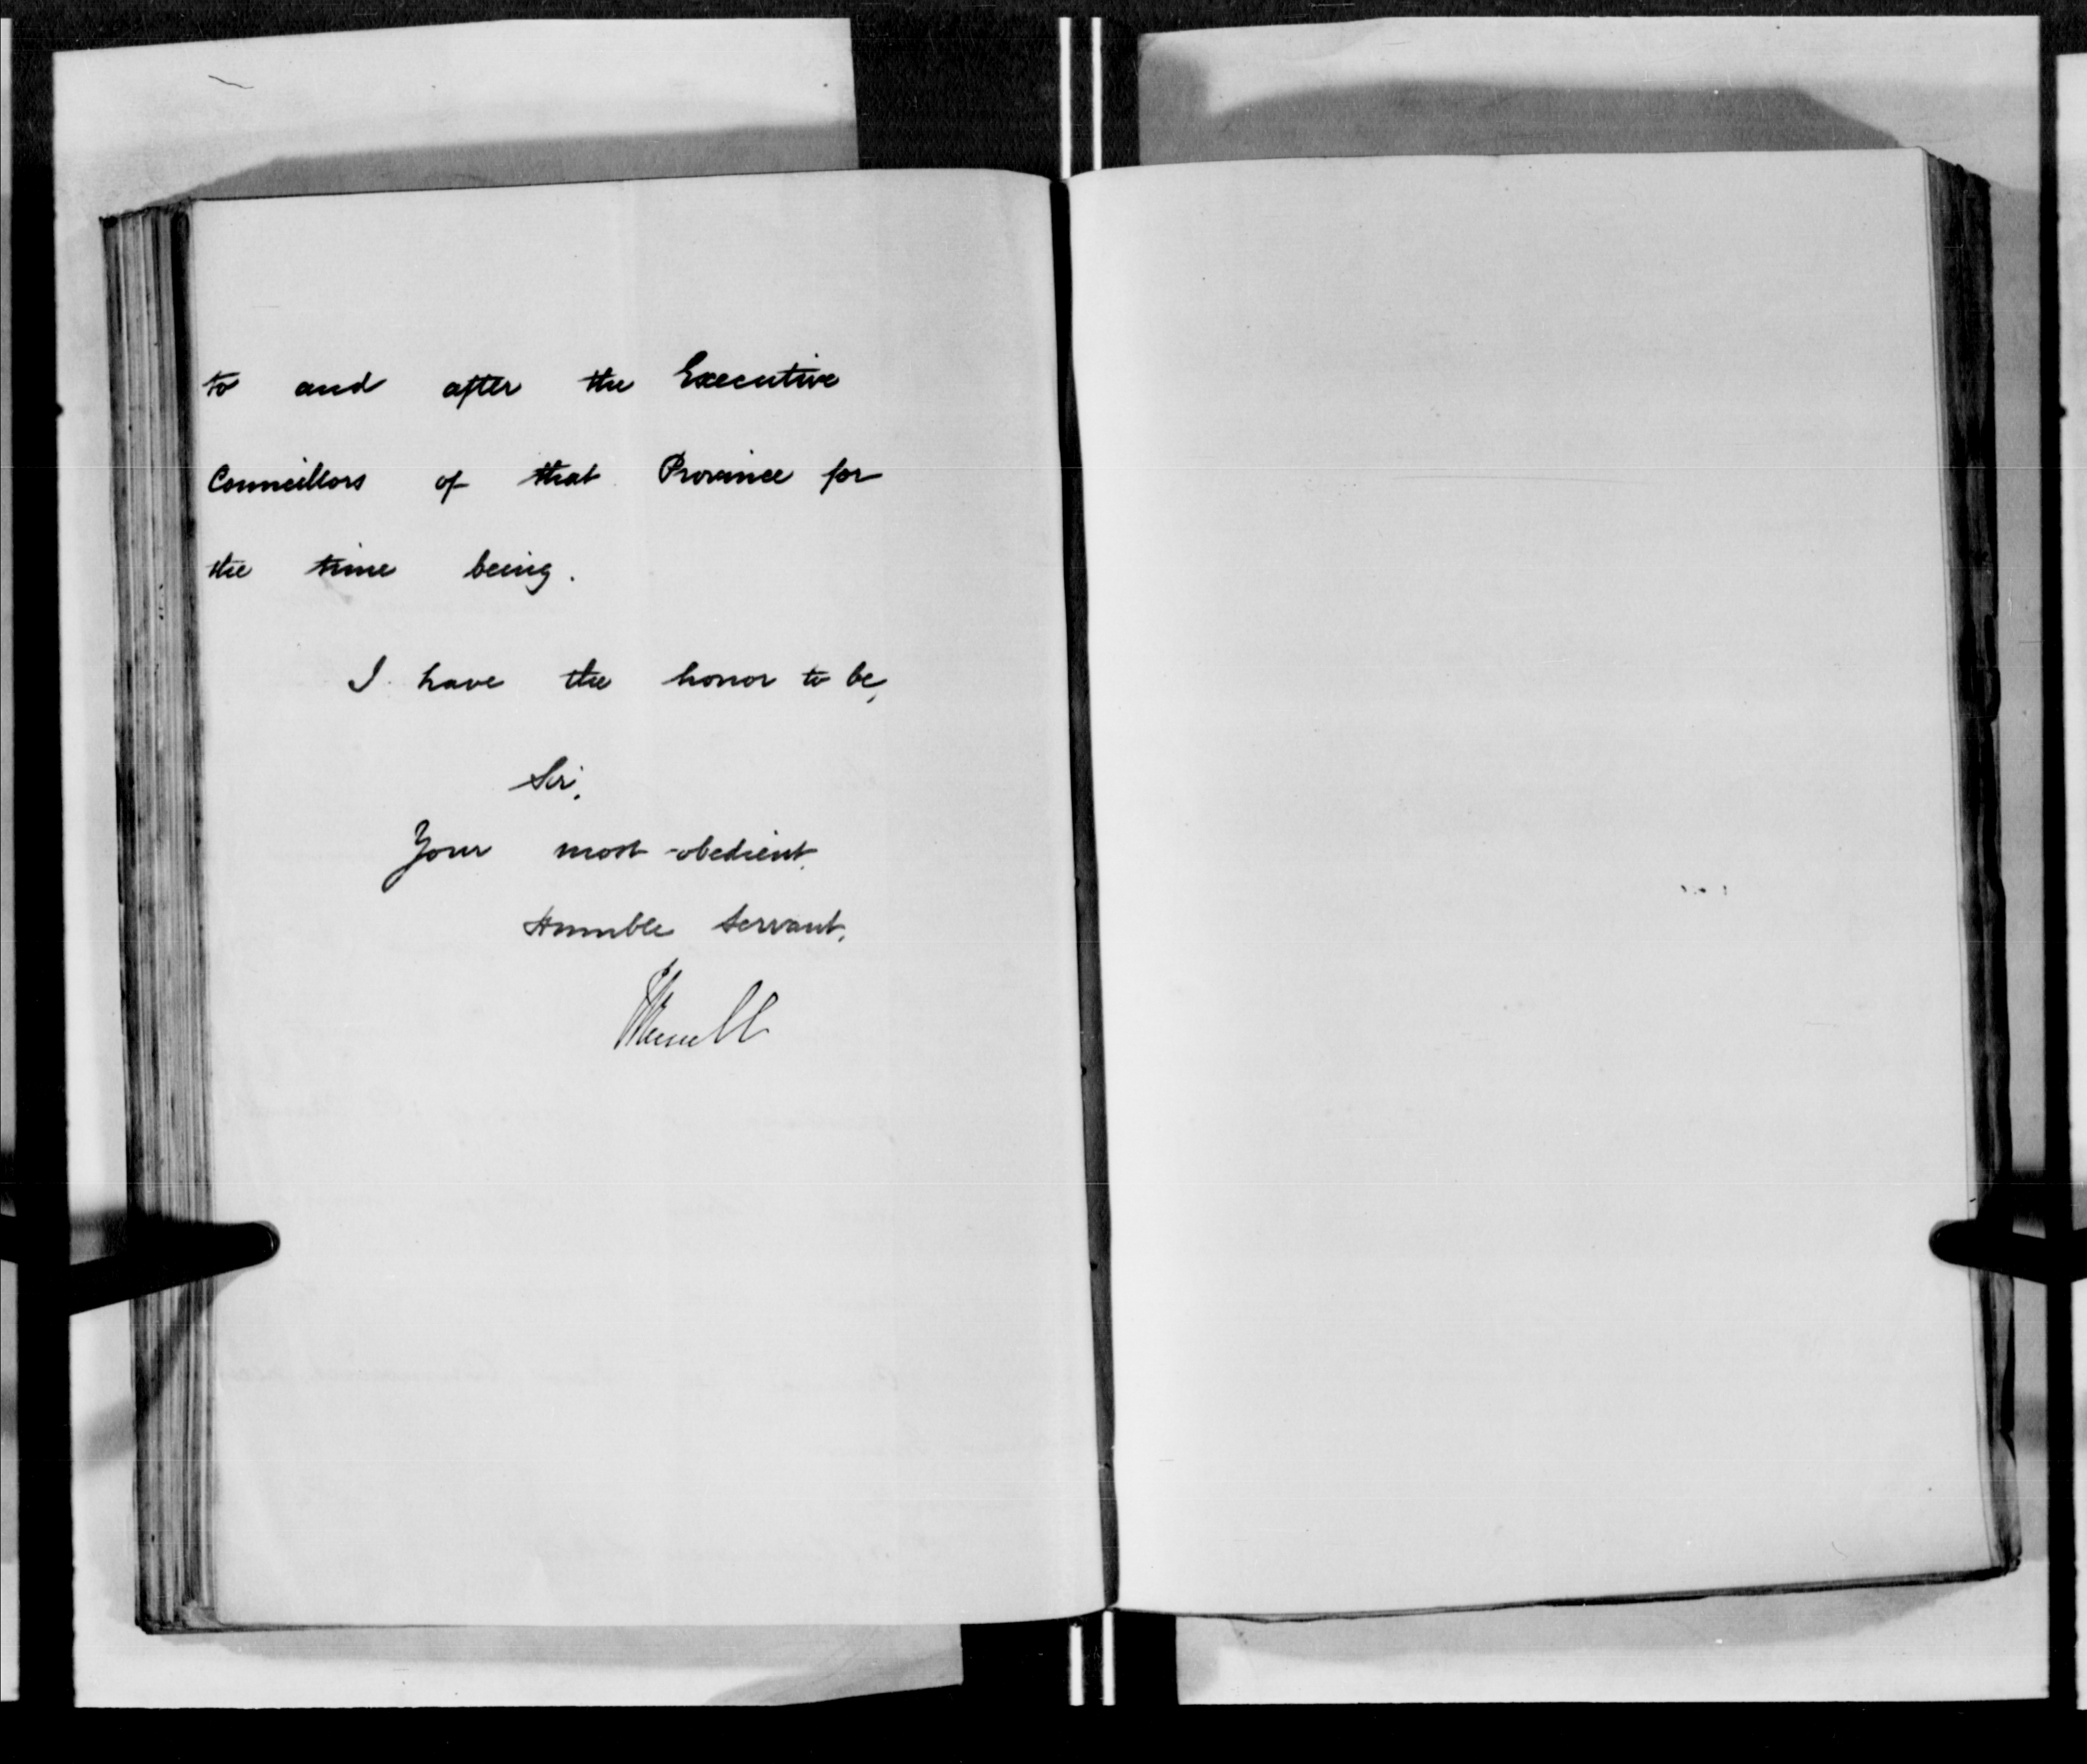 to and after the Executive
Councillors of that Province for
the time being.
I have the honor to be,
Sir,
Your most obedient
Humble Servant,